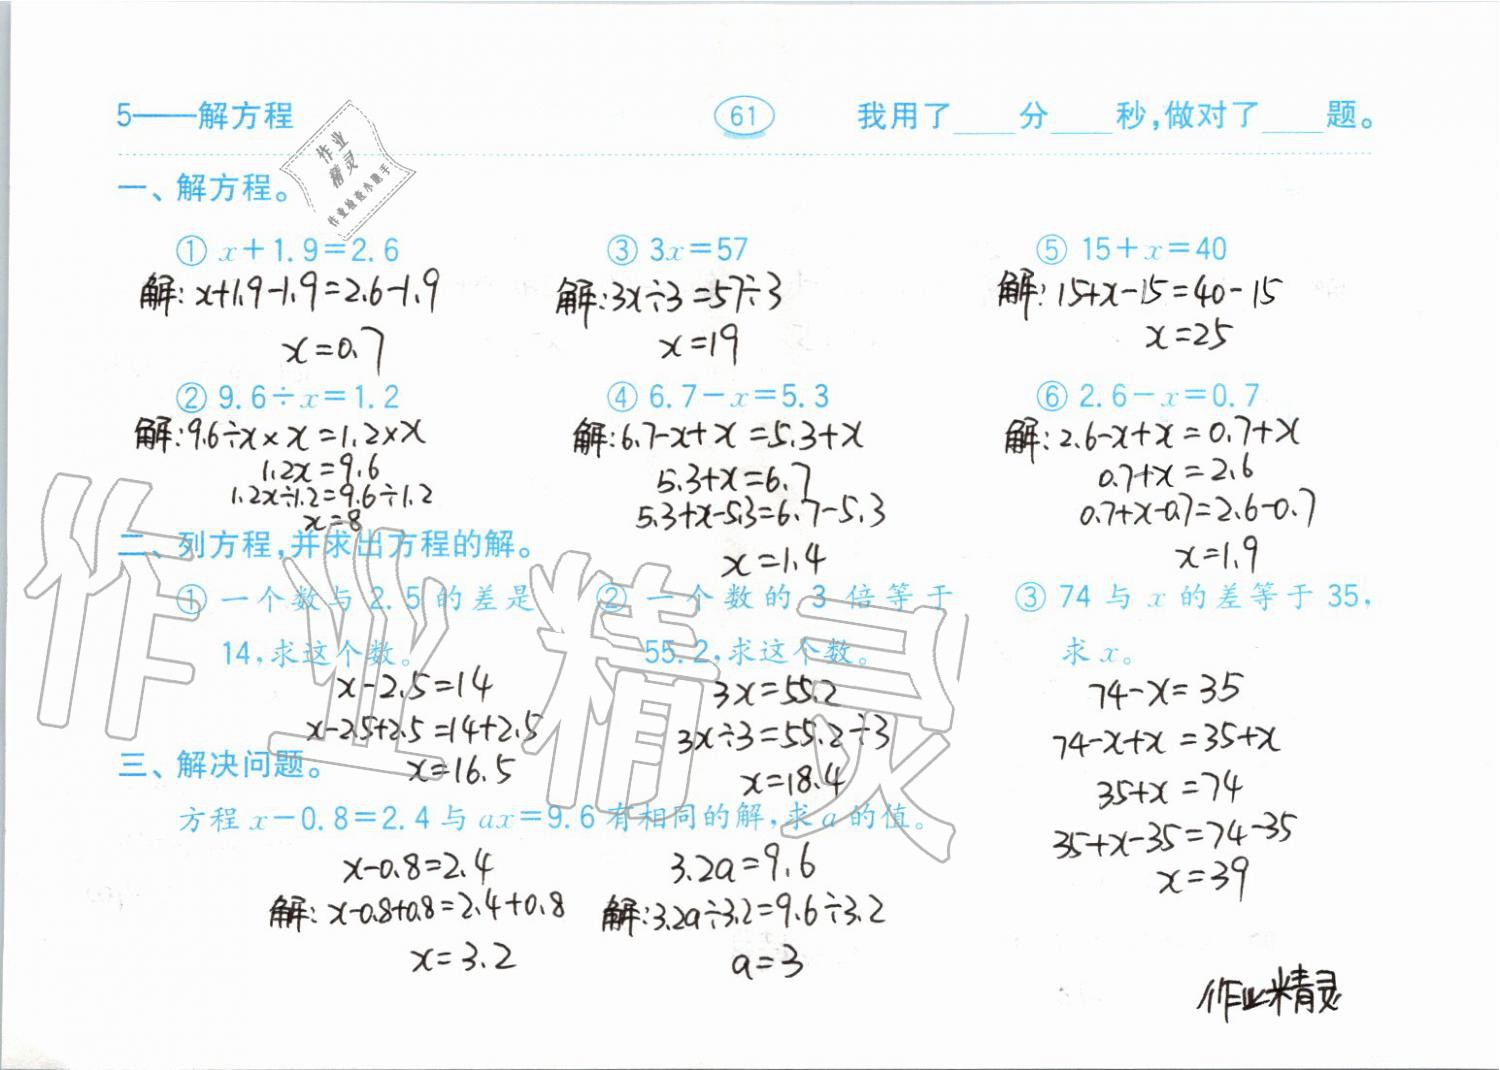 5——解方程 61 我用了____分____秒,做对了____题。
作业
精灵
作业检查小助手
一、解方程。
① x+1.9=2.6 ③ 3x=57 ⑤ 15+x=40
解:x+1.9-1.9=2.6-1.9 解:3x÷3=57÷3 解:15+x-15=40-15
x=0.7 x=19 x=25
② 9.6÷x=1.2 ④ 6.7-x=5.3 ⑥ 2.6-x=0.7
解:9.6÷x×x=1.2×x 解:6.7-x+x=5.3+x 解:2.6-x+x=0.7+x
1.2x=9.6 5.3+x=6.7 0.7+x=2.6
1.2x÷1.2=9.6÷1.2 5.3+x-5.3=6.7-5.3 0.7+x-0.7=2.6-0.7
x=8 x=1.4 x=1.9
二、列方程,并求出方程的解。
① 一个数与2.5的差是 ② 一个数的3倍等于 ③ 74与x的差等于35,
14,求这个数。 55.2,求这个数。 求x。
x-2.5=14 3x=55.2 74-x=35
x-2.5+2.5=14+2.5 3x÷3=55.2÷3 74-x+x=35+x
x=16.5 x=18.4 35+x=74
35+x-35=74-35
x=39
三、解决问题。
方程x-0.8=2.4与ax=9.6有相同的解,求a的值。
x-0.8=2.4 3.2a=9.6
解:x-0.8+0.8=2.4+0.8 解:3.2a÷3.2=9.6÷3.2
x=3.2 a=3
作业精灵
作业精灵